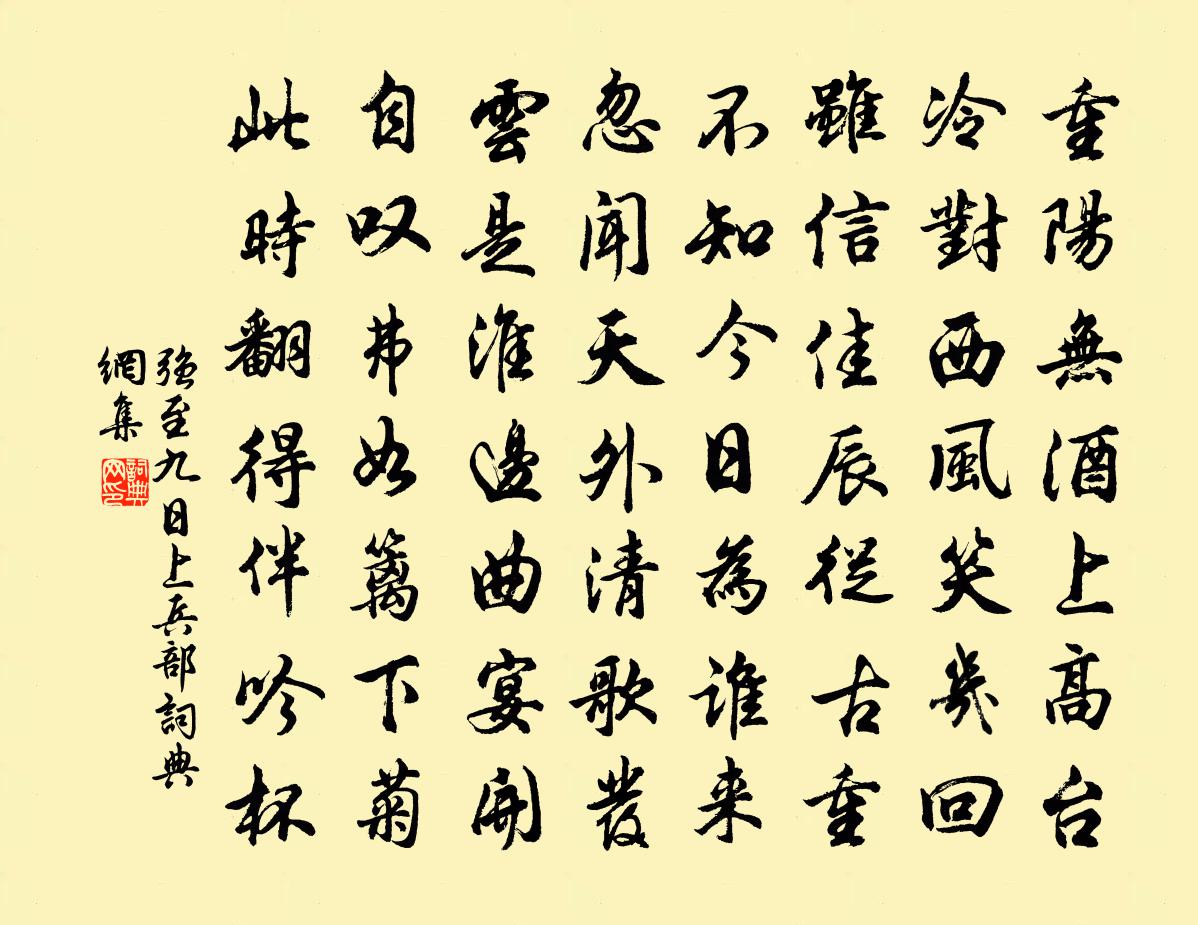 重陽無酒上高台
冷對西風笑幾回
雖信佳辰從古重
不知今日為誰来
忽聞天外清歌發
雲是淮邊曲宴開
自叹弗如篱下菊
此時翻得伴吟杯
強至九日上兵部詞典
網集
詞典